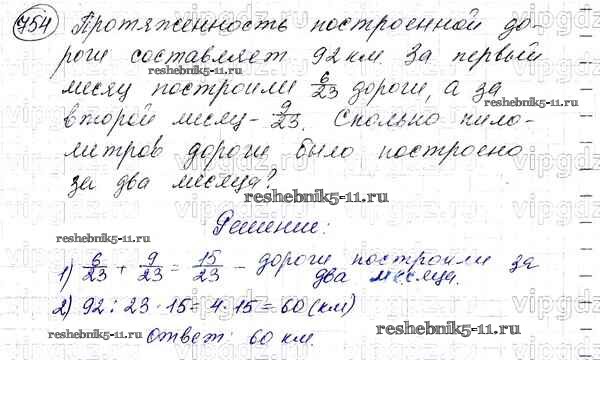 754 Протяженность построенной до-
роги составляет 92 км. За первый
месяц построили 6/23 дороги, а за
второй месяц - 9/23. Сколько кило-
метров дороги было построено
за два месяца?
Решение:
1) 6/23 + 9/23 = 15/23 - дороги построили за
два месяца.
2) 92 : 23 · 15 = 4 · 15 = 60 (км)
Ответ: 60 км.
reshebnik5-11.ru
reshebnik5-11.ru
reshebnik5-11.ru
reshebnik5-11.ru
vipgdz.ru